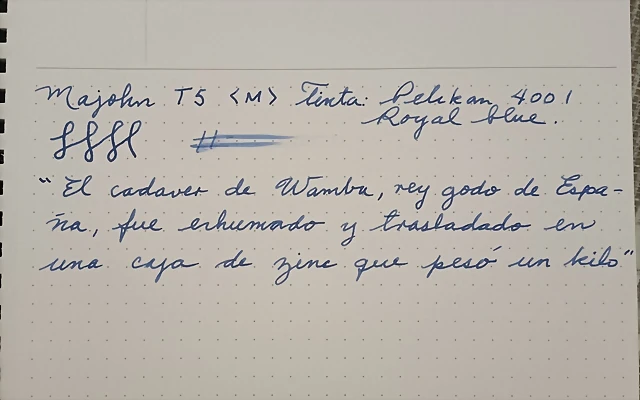 Majohn T5 <M> Tinta: Pelikan 4001
Royal blue.
"El cadaver de Wamba, rey godo de Espa-
ña, fue exhumado y trasladado en
una caja de zinc que pesó un kilo"